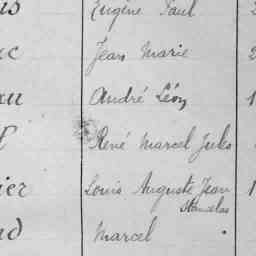 is Eugène Paul
Jean Marie
André Léon
René Marcel Jules
ier Louis Auguste Jean
Stanislas
nd Marcel